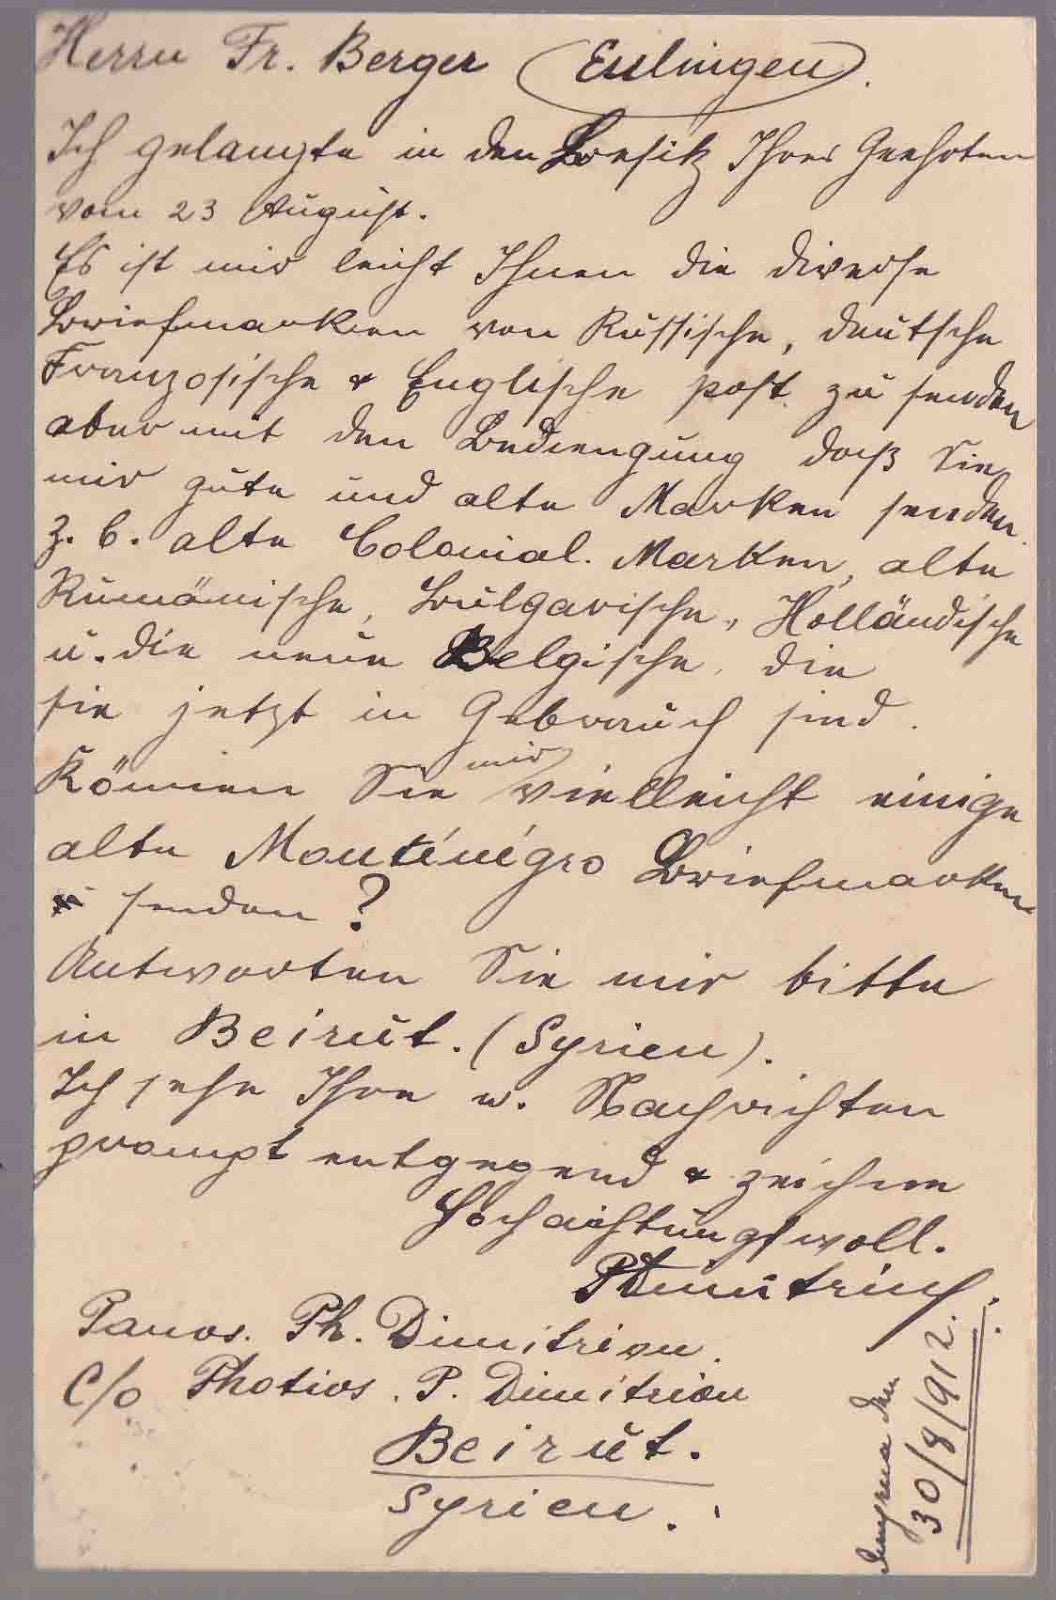 Herrn Fr. Berger Eulingen.
Ich gelangte in den Besitz Ihres Geehrten
vom 23 August.
Es ist mir leicht Ihnen die diverse
Briefmarken von Russische, deutsche
Französische & Englische post zu senden
aber mit den Bediengung daß Sie
mir gute und alte Marken senden.
z. b. alte Colonial. Marken, alte
Rumänische, Bulgarische, Holländische
u. die neue Belgische, die
sie jetzt in Gebrauch sind.
Können Sie mir vielleicht einige
alte Monténégro Briefmarken
senden?
Antworten Sie mir bitte
in Beirut. (Syrien).
Ich sehe Ihre w. Nachrichten
prompt entgegend & zeichne
Hochachtungsvoll.
Panos. Ph. Dimitriou.
C/o Photios. P. Dimitriou
Beirut.
Syrien.
Smyrna den
30/8/912.